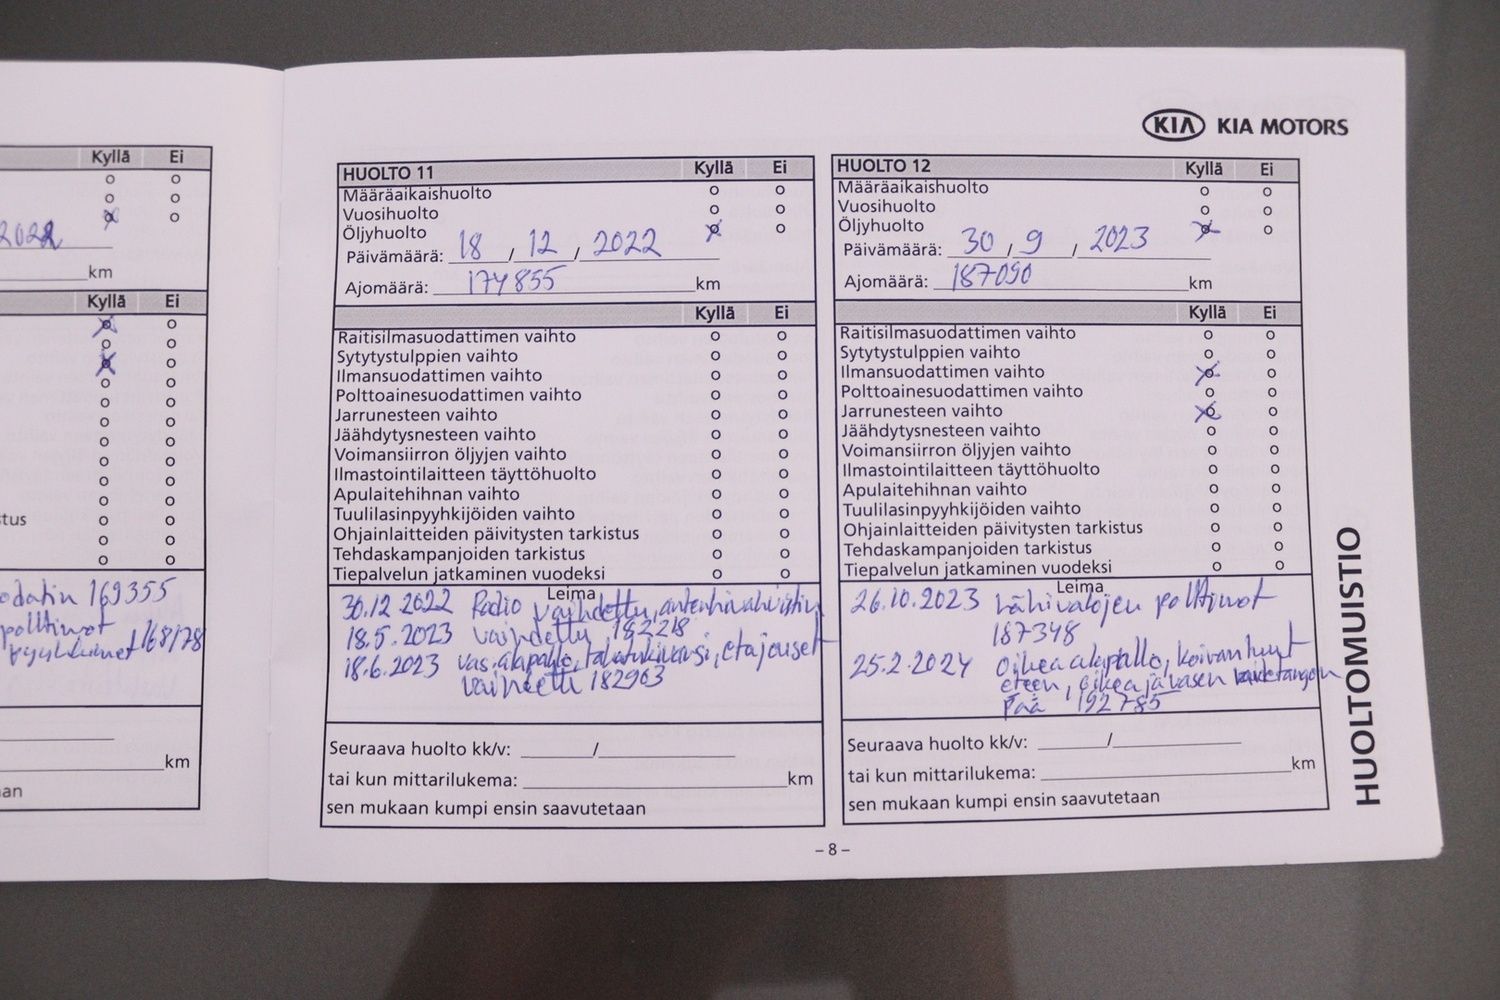 Kyllä Ei
2022
km
Kyllä Ei
stus
odatin 169355
polttimot
168178
km
aan
KIA KIA MOTORS
HUOLTO 11 Kyllä Ei
Määräaikaishuolto
Vuosihuolto
Öljyhuolto
Päivämäärä: 18 / 12 / 2022
Ajomäärä: 174855 km
Kyllä Ei
Raitisilmasuodattimen vaihto
Sytytystulppien vaihto
Ilmansuodattimen vaihto
Polttoainesuodattimen vaihto
Jarrunesteen vaihto
Jäähdytysnesteen vaihto
Voimansiirron öljyjen vaihto
Ilmastointilaitteen täyttöhuolto
Apulaitehihnan vaihto
Tuulilasinpyyhkijöiden vaihto
Ohjainlaitteiden päivitysten tarkistus
Tehdaskampanjoiden tarkistus
Tiepalvelun jatkaminen vuodeksi
Leima
30.12.2022 Radio vaihdettu, antennivahvistin
18.5.2023 vaihdettu 182218
18.6.2023 vas. alapallo, takatukivarsi, etajouset
vaihdettu 182963
Seuraava huolto kk/v: /
tai kun mittarilukema: km
sen mukaan kumpi ensin saavutetaan
HUOLTO 12 Kyllä Ei
Määräaikaishuolto
Vuosihuolto
Öljyhuolto
Päivämäärä: 30 / 9 / 2023
Ajomäärä: 187090 km
Kyllä Ei
Raitisilmasuodattimen vaihto
Sytytystulppien vaihto
Ilmansuodattimen vaihto
Polttoainesuodattimen vaihto
Jarrunesteen vaihto
Jäähdytysnesteen vaihto
Voimansiirron öljyjen vaihto
Ilmastointilaitteen täyttöhuolto
Apulaitehihnan vaihto
Tuulilasinpyyhkijöiden vaihto
Ohjainlaitteiden päivitysten tarkistus
Tehdaskampanjoiden tarkistus
Tiepalvelun jatkaminen vuodeksi
Leima
26.10.2023 Lähivalojen polttimot
187348
25.2.2024 Oikea alapallo, koiranluut
eteen, oikea ja vasen raidetangon
pää 192785
Seuraava huolto kk/v: /
tai kun mittarilukema: km
sen mukaan kumpi ensin saavutetaan
HUOLTOMUISTIO
– 8 –